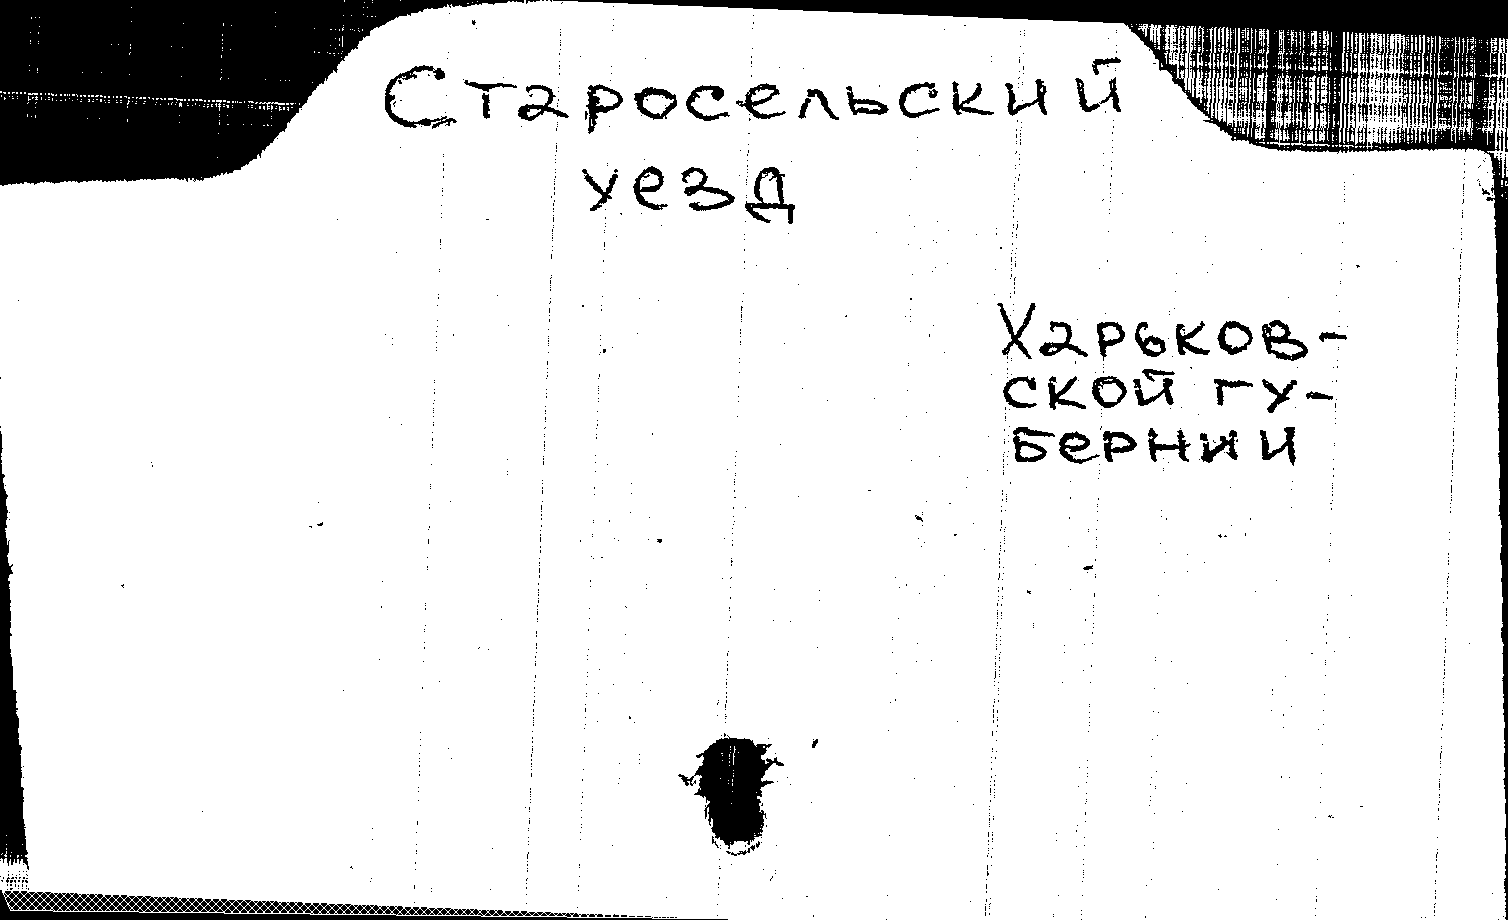 Старосельский
уезд
Харьков-
ской гу-
бернии